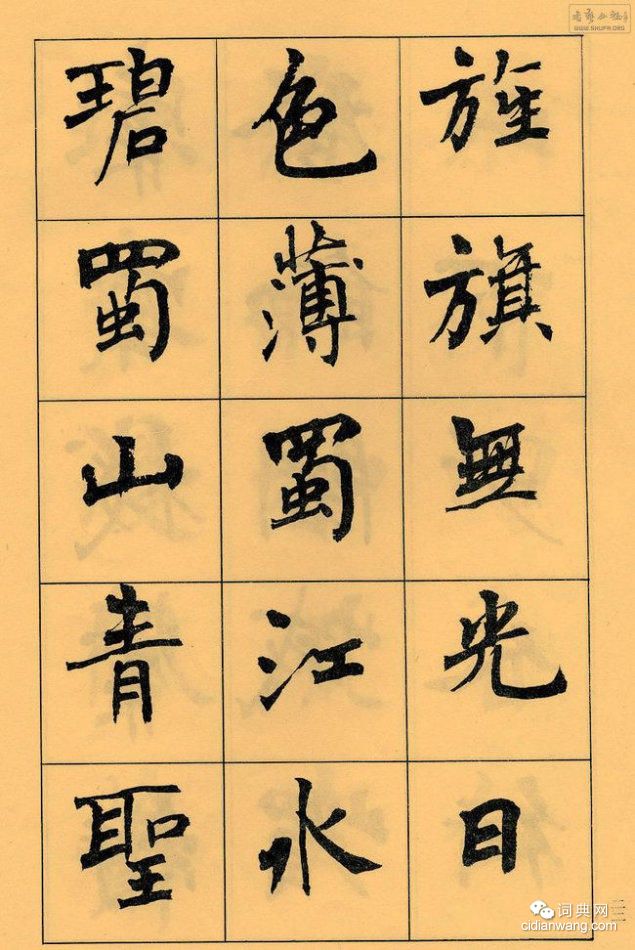 旌旗無光日
色薄蜀江水
碧蜀山青聖
三三
WWW.SHUFA.ORG
词典网
cidianwang.com